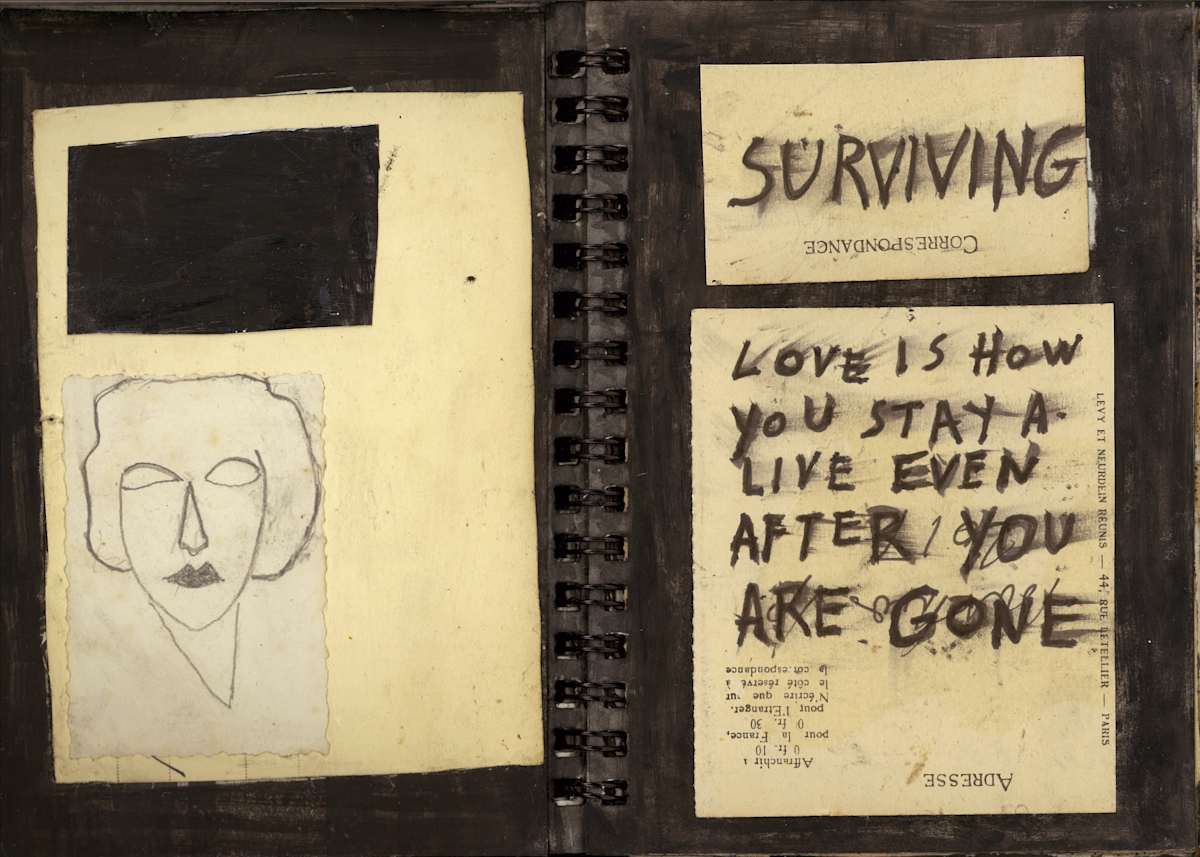 SURVIVING
CORRESPONDANCE
LOVE IS HOW
YOU STAY A-
LIVE EVEN
AFTER YOU
ARE GONE
LEVY ET NEURDEIN RÉUNIS — 44, RUE LETELLIER — PARIS
ADRESSE
Affranchir :
0 fr. 10
pour la France,
0 fr. 30
pour l'Etranger.
N'écrire que sur
le côté réservé à
la correspondance